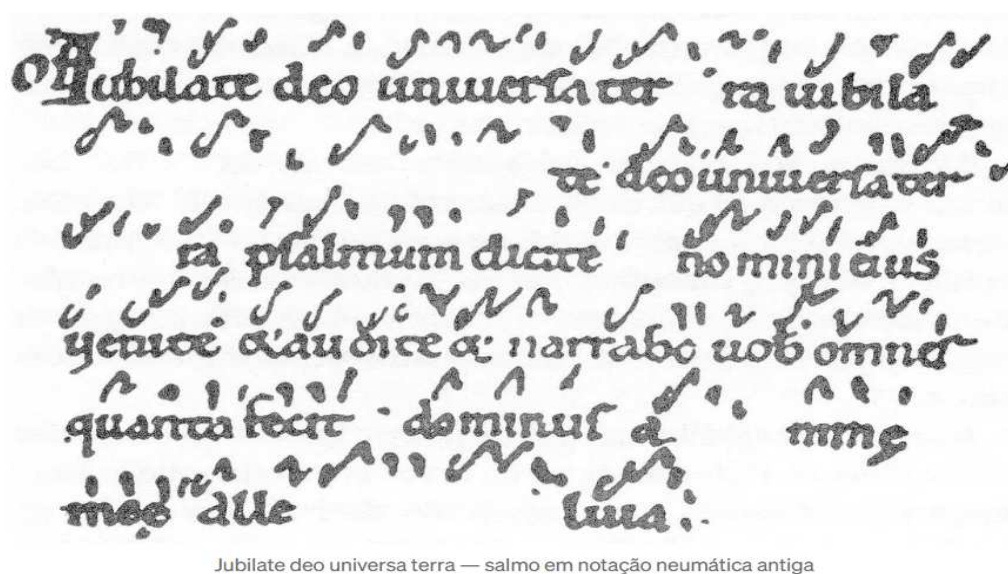 Iubilate deo uniuersa ter ra iubila
te deo uniuersa ter
ra psalmum dicite nomini eius
uenite & audite & narrabo uob omnes
quanta fecit dominus a nime
alle luia.
Jubilate deo universa terra — salmo em notação neumática antiga